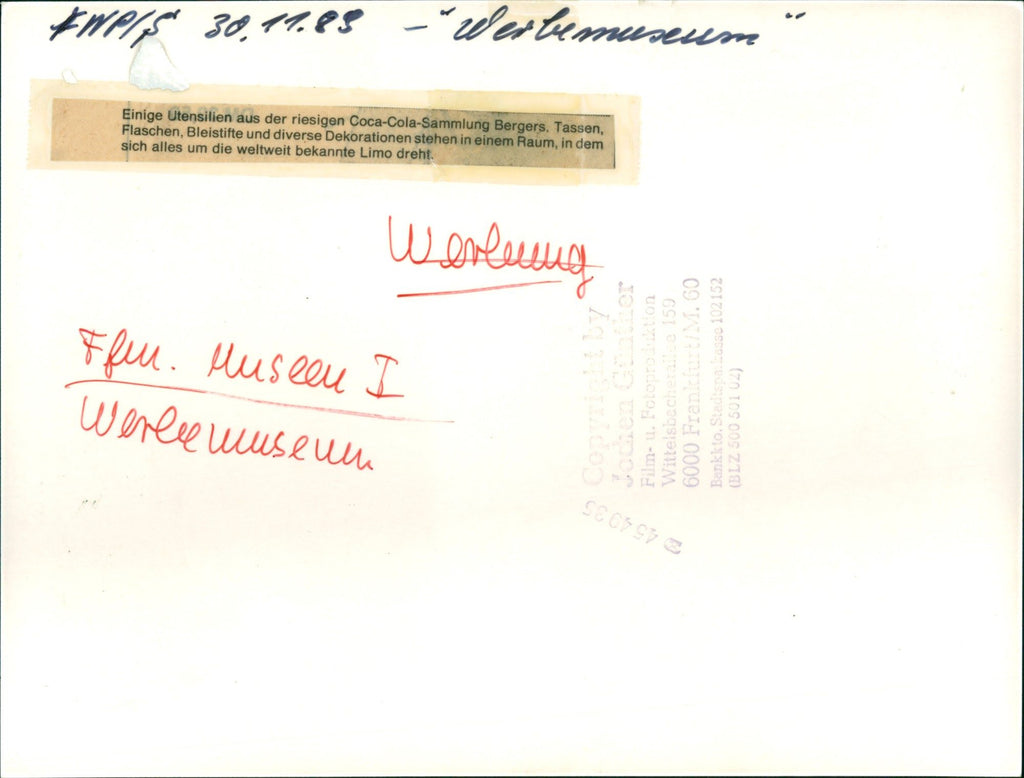 FNP/S 30.11.83 - "Werbemuseum"
Einige Utensilien aus der riesigen Coca-Cola-Sammlung Bergers. Tassen,
Flaschen, Bleistifte und diverse Dekorationen stehen in einem Raum, in dem
sich alles um die weltweit bekannte Limo dreht.
Werbung
Ffm. Museen I
Werbemuseum
Copyright by
Jochen Günther
Film- u. Fotoproduktion
Wittelsbacherallee 159
6000 Frankfurt/M. 60
Bankkto. Stadtsparkasse 102152
(BLZ 500 501 02)
454935